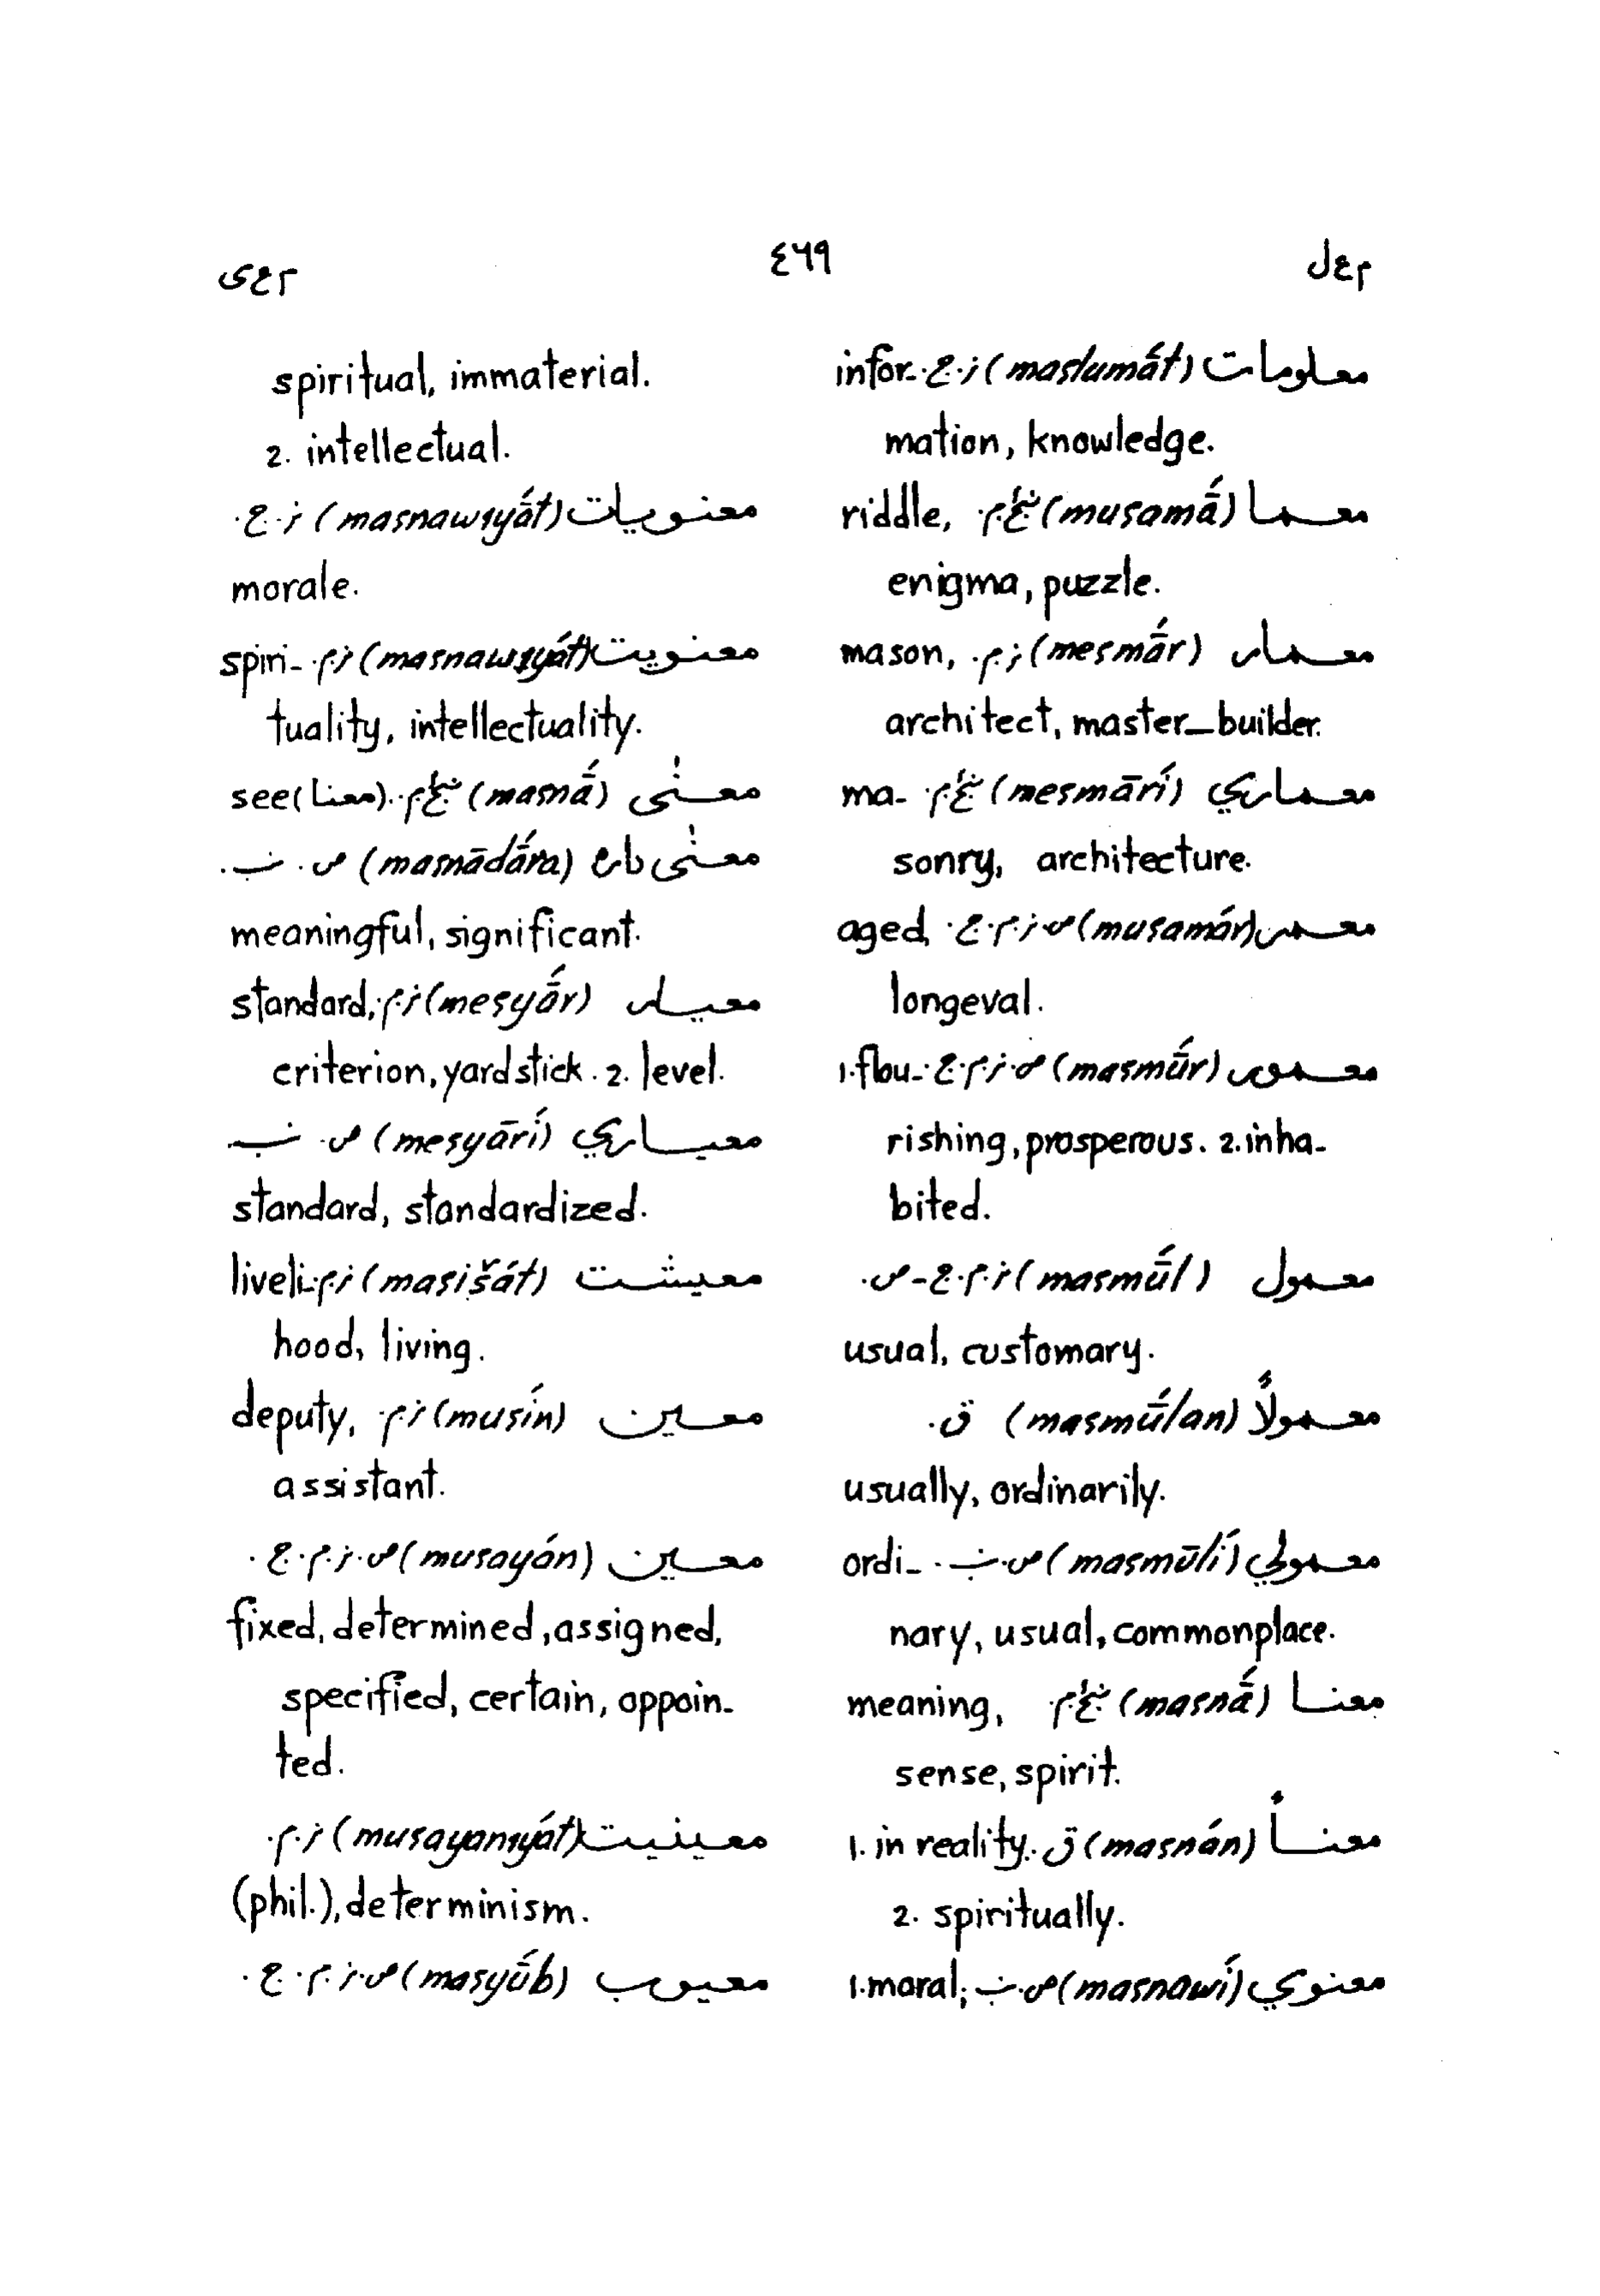 م ع ل ٤٦٩ م ع ی
معلومات (maʕlumā́t) ز. ج. infor-
mation, knowledge.
معما (muʕamā́) ښځ. م. riddle,
enigma, puzzle.
معمار (meʕmā́r) ز. م. mason,
architect, master-builder.
معماري (meʕmārí) ښځ. م. ma-
sonry, architecture.
معمر (muʕamár) ص. ز. م. ج. aged,
longeval.
معمور (maʕmū́r) ص. ز. م. ج. 1. flou-
rishing, prosperous. 2. inha-
bited.
معمول (maʕmū́l) ز. م. ج - ص.
usual, customary.
معمولاً (maʕmū́lan) ق.
usually, ordinarily.
معمولي (maʕmūlí) ص. نب. ordi-
nary, usual, commonplace.
معنا (maʕnā́) ښځ. م. meaning,
sense, spirit.
معناً (maʕnán) ق. 1. in reality.
2. spiritually.
معنوي (maʕnawí) ص. نب 1. moral;
spiritual, immaterial.
2. intellectual.
معنويات (maʕnawıyā́t) ز. ج.
morale.
معنويت (maʕnawıyát) ز. م. spiri-
tuality, intellectuality.
معنٰی (maʕnā́) ښځ. م. see (معنا).
معنٰی داره (maʕnādā́ra) ص. نب.
meaningful, significant.
معيار (meʕyā́r) ز. م. standard,
criterion, yardstick. 2. level.
معياري (meʕyārí) ص. نب
standard, standardized.
معيشت (maʕišát) ز. م. liveli-
hood, living.
معين (muʕín) ز. م. deputy,
assistant.
معين (muʕayán) ص. ز. م. ج.
fixed, determined, assigned,
specified, certain, appoin-
ted.
معينيت (muʕayanıyát) ز. م.
(phil.), determinism.
معيوب (maʕyū́b) ص. ز. م. ج.